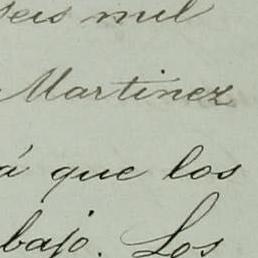 seis mil
Martinez
á que los
bajo. Los